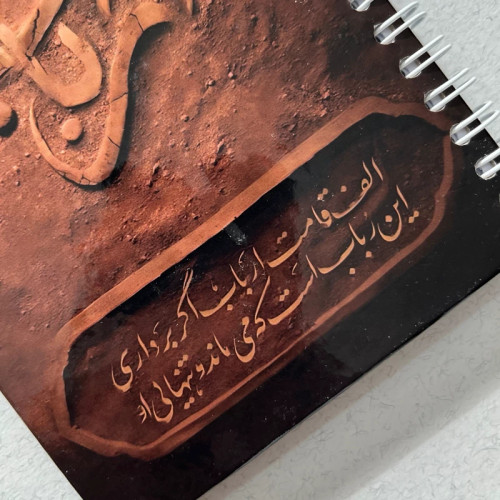 الف قامت ارباب اگر برداری
این رباب است که می ماند و تنهایی او